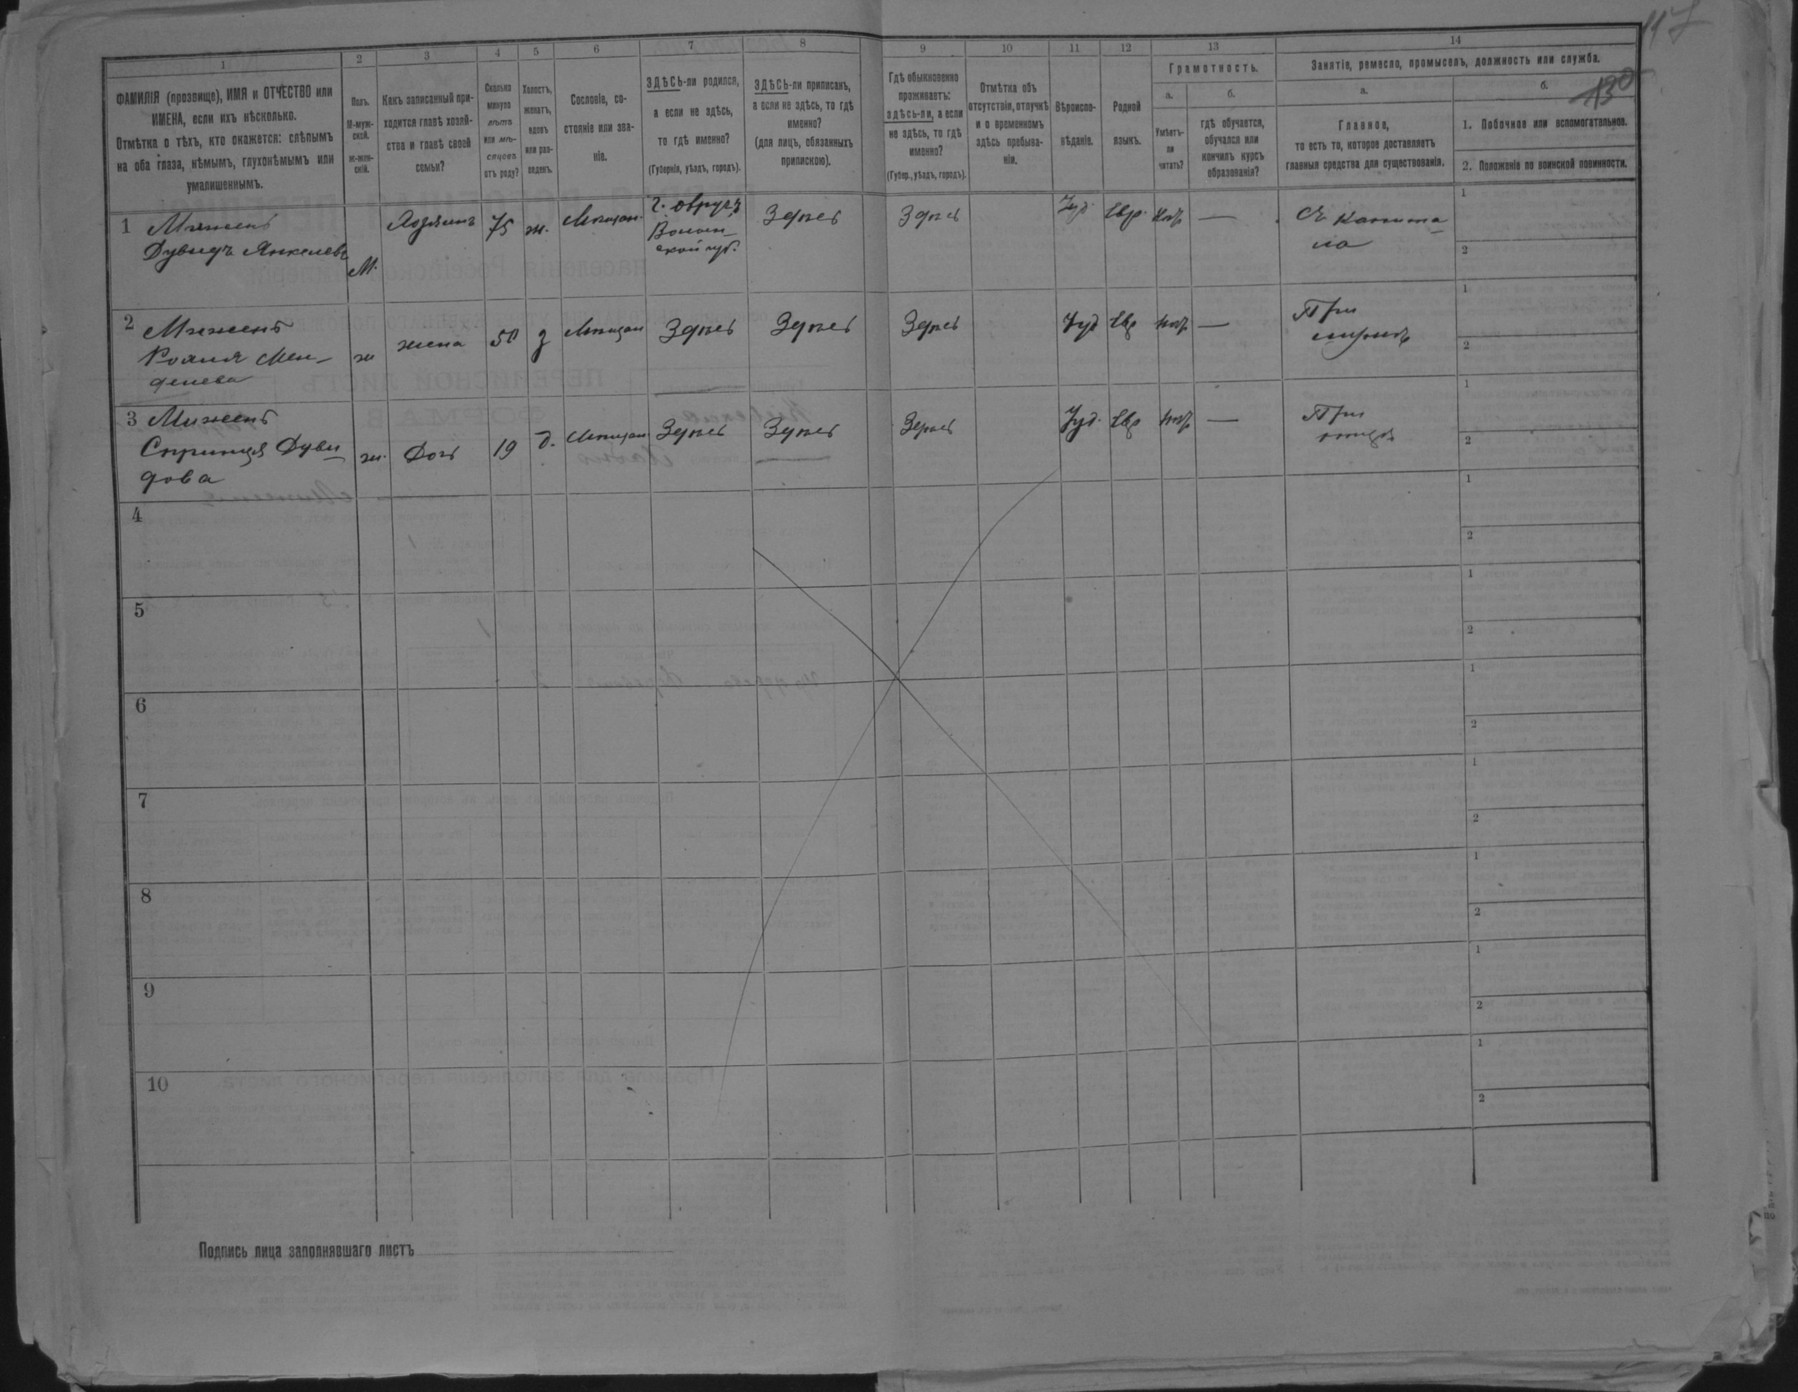 117
130
1
2
3
4
5
6
7
8
9
10
11
12
13
14
ФАМИЛІЯ (прозвище), ИМЯ и ОТЧЕСТВО или
ИМЕНА, если ихъ нѣсколько.
Отмѣтка о тѣхъ, кто окажется: слѣпымъ
на оба глаза, нѣмымъ, глухонѣмымъ или
умалишеннымъ.
Полъ.
М-муж-
ской.
ж-жен-
скій.
Какъ записанный при-
ходится главѣ хозяй-
ства и главѣ своей
семьи?
Сколько
минуло
лѣтъ
или мѣ-
сяцевъ
отъ роду?
Холостъ,
женатъ,
вдовъ
или раз-
веденъ.
Сословіе, со-
стояніе или зва-
ніе.
ЗДѢСЬ-ли родился,
а если не здѣсь,
то гдѣ именно?
(Губернія, уѣздъ, городъ).
ЗДѢСЬ-ли приписанъ,
а если не здѣсь, то гдѣ
именно?
(для лицъ, обязанныхъ
припискою).
Гдѣ обыкновенно
проживаетъ:
здѣсь-ли, а если
не здѣсь, то гдѣ
именно?
(Губер., уѣздъ, городъ).
Отмѣтка объ
отсутствіи, отлучкѣ
и о временномъ
здѣсь пребыва-
ніи.
Вѣроиспо-
вѣданіе.
Родной
языкъ.
Грамотность.
а.
Умѣетъ-
ли
читать?
б.
гдѣ обучается,
обучался или
кончилъ курсъ
образованія?
Занятіе, ремесло, промыселъ, должность или служба.
а.
Главное,
то есть то, которое доставляетъ
главныя средства для существованія.
б.
1. Побочное или вспомогательное.
2. Положеніе по воинской повинности.
1
Дувидъ Янкелевъ
М.
Хозяинъ
75
ж.
Мѣщан.
г. Овручъ
Волын-
ской губ.
Здѣсь
Здѣсь
Іуд.
Евр.
—
Съ капита-
ла
1
2
2
Мен-
делева
ж
жена
50
з
Мѣщан
Здѣсь
Здѣсь
Здѣсь
Іуд
Евр
—
При
мужѣ
1
2
3
Спринця Дуви-
дова
ж.
Дочь
19
д.
Мѣщан
Здѣсь
Здѣсь
Здѣсь
Іуд.
Евр
—
При
отцѣ
1
2
4
1
2
5
1
2
6
1
2
7
1
2
8
1
2
9
1
2
10
1
2
Подпись лица заполнявшаго листъ